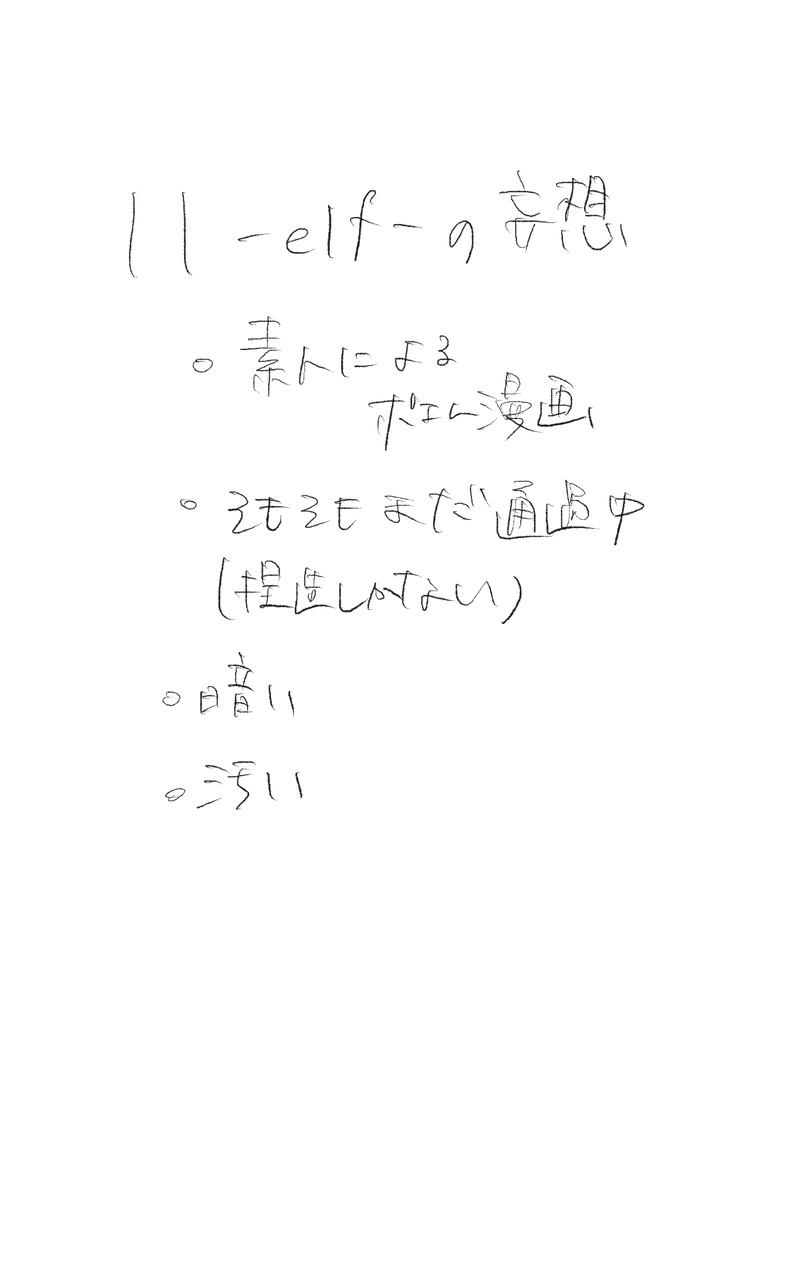 11 -elf- の妄想
○ 素人による
ポエム漫画
○ そもそもまだ通過中
(捏造しかない)
○ 暗い
○ 汚い